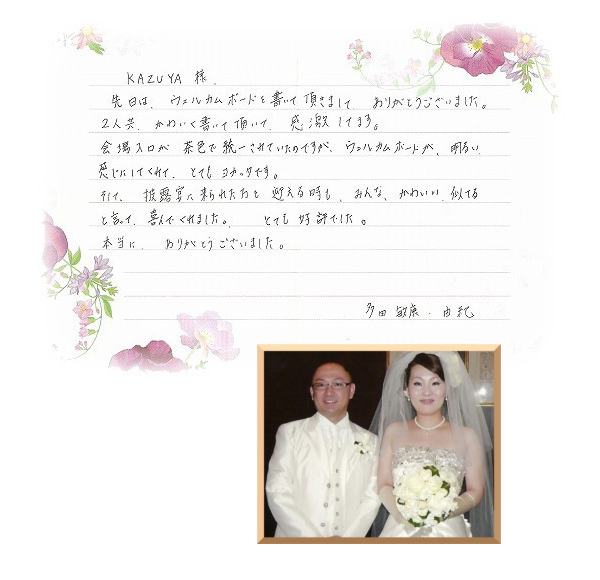 KAZUYA 様.
先日は、ウェルカムボードを書いて頂きまして、ありがとうございました。
2人共、かわいく書いて頂いて、感激してます。
会場入口が 茶色で統一されていたのですが、ウェルカムボードが、明るい
感じにしてくれて、とてもヨカッタです。
そして、披露宴に来られた方を 迎える時も、みんな、かわいい、似てる
と言って、喜んでくれました。 とても好評でした。
本当に、ありがとうございました。
多田 敏康・由紀